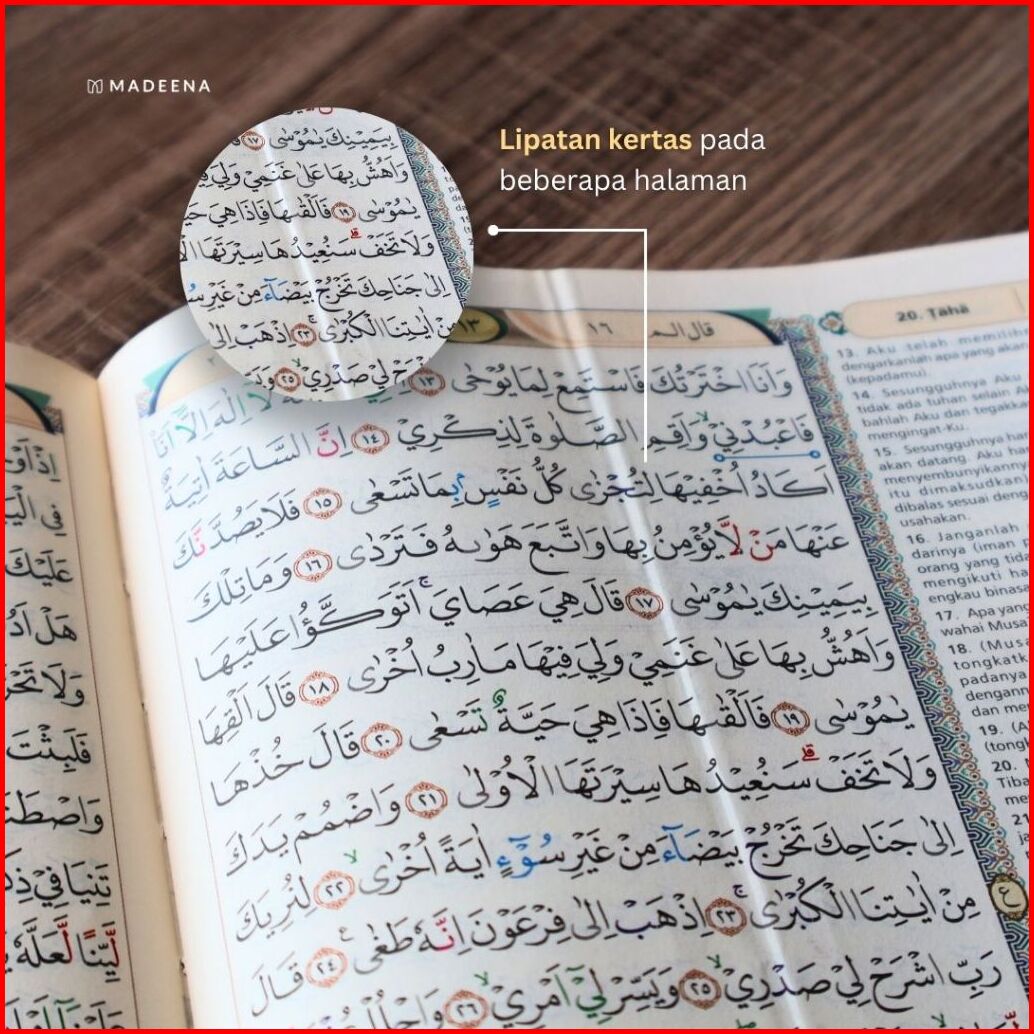 MADEENA
Lipatan kertas pada
beberapa halaman
بِيَمِيْنِكَ يٰمُوْسٰى ١٧
وَاَهُشُّ بِهَا عَلٰى غَنَمِيْ وَلِيَ
يٰمُوْسٰى ١٩ فَاَلْقٰىهَا فَاِذَا هِيَ
وَلَا تَخَفْ سَنُعِيْدُهَا سِيْرَتَهَا
اِلٰى جَنَاحِكَ تَخْرُجْ بَيْضَاۤءَ مِنْ غَيْرِ
مِنْ اٰيٰتِنَا الْكُبْرٰى ٢٣ اِذْهَبْ اِلٰى
لِيْ صَدْرِيْ ٢٥
قال الم ١٦
١٣
20. Ṭāhā
وَاَنَا اخْتَرْتُكَ فَاسْتَمِعْ لِمَا يُوْحٰى ١٣ لَآ اِلٰهَ اِلَّآ اَنَا۠
فَاعْبُدْنِيْ وَاَقِمِ الصَّلٰوةَ لِذِكْرِيْ ١٤ اِنَّ السَّاعَةَ اٰتِيَةٌ
اَكَادُ اُخْفِيْهَا لِتُجْزٰى كُلُّ نَفْسٍ بِمَا تَسْعٰى ١٥ فَلَا يَصُدَّنَّكَ
عَنْهَا مَنْ لَّا يُؤْمِنُ بِهَا وَاتَّبَعَ هَوٰىهُ فَتَرْدٰى ١٦ وَمَا تِلْكَ
بِيَمِيْنِكَ يٰمُوْسٰى ١٧ قَالَ هِيَ عَصَايَ اَتَوَكَّؤُا عَلَيْهَا
وَاَهُشُّ بِهَا عَلٰى غَنَمِيْ وَلِيَ فِيْهَا مَاٰرِبُ اُخْرٰى ١٨ قَالَ اَلْقِهَا
يٰمُوْسٰى ١٩ فَاَلْقٰىهَا فَاِذَا هِيَ حَيَّةٌ تَسْعٰى ٢٠ قَالَ خُذْهَا
وَلَا تَخَفْ سَنُعِيْدُهَا سِيْرَتَهَا الْاُوْلٰى ٢١ وَاضْمُمْ يَدَكَ
اِلٰى جَنَاحِكَ تَخْرُجْ بَيْضَاۤءَ مِنْ غَيْرِ سُوْۤءٍ اٰيَةً اُخْرٰى ٢٢ لِنُرِيَكَ
مِنْ اٰيٰتِنَا الْكُبْرٰى ٢٣ اِذْهَبْ اِلٰى فِرْعَوْنَ اِنَّهٗ طَغٰى ٢٤ قَالَ
رَبِّ اشْرَحْ لِيْ صَدْرِيْ ٢٥ وَيَسِّرْ لِيْٓ اَمْرِيْ ٢٦ وَاحْلُلْ
ع
13. Aku telah memilih
dengarkanlah apa yang akan
(kepadamu).
14. Sesungguhnya Aku
tidak ada tuhan selain
bahlah Aku dan tegakka
mengingat-Ku.
15. Sesungguhnya har
akan datang. Aku ha
menyembunyikanny
itu dimaksudkan
dibalas sesuai deng
usahakan.
16. Janganlah
darinya (iman
orang yang tida
mengikuti ha
engkau binasa
17. Apa yang
wahai Musa
18. (Musa
tongkatk
padanya
dengann
dan me
19. (A
(tong
20.
Tiba
me
21
فِى الْيَمِّ
عَلَيْكَ
هَلْ اَدُ
وَلَا تَحْزَ
فَلَبِثْتَ
وَاصْطَنَ
تَنِيَا فِيْ ذِ
لَّيِّنًا لَّعَلَّهٗ